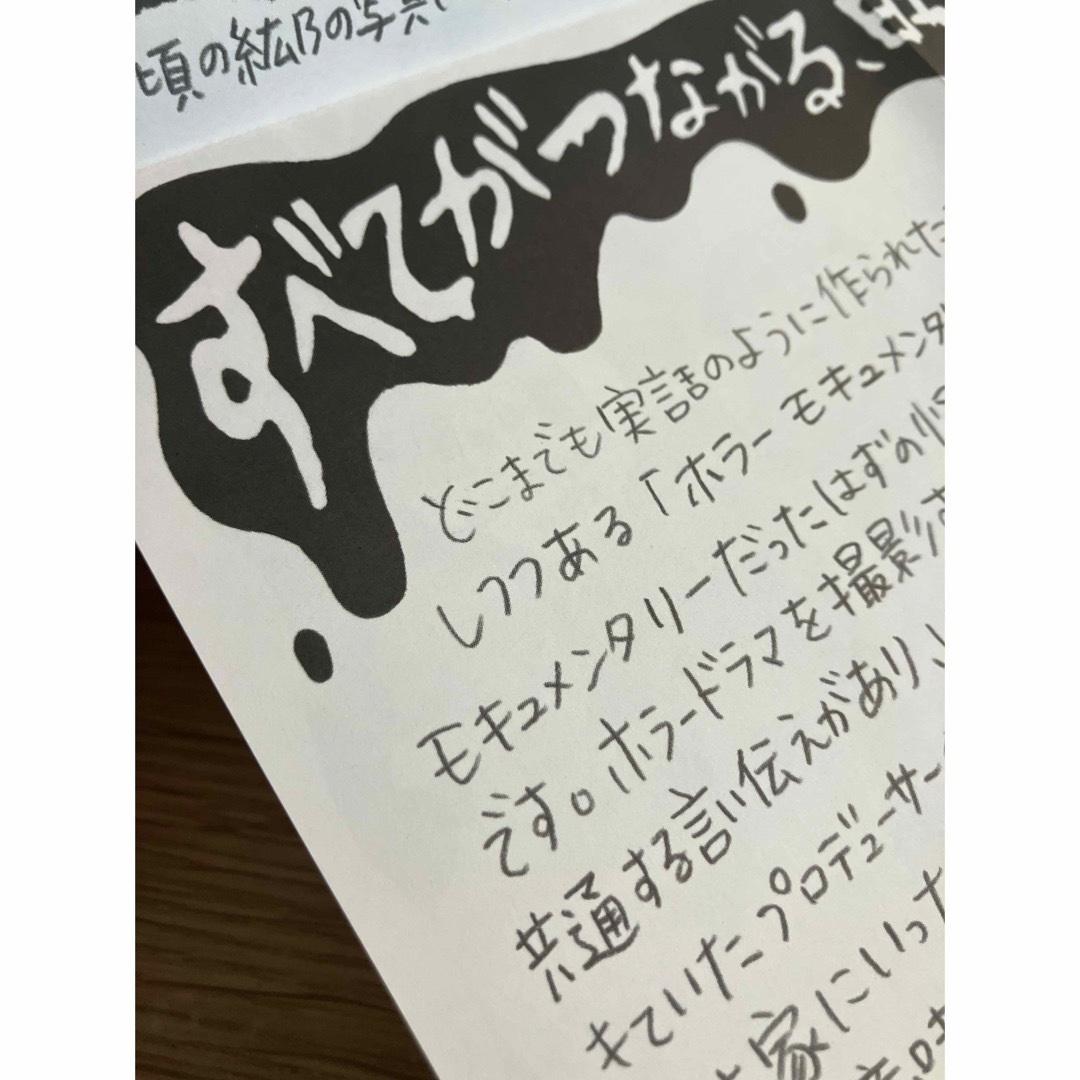 頃の紘Bの写真
すべてがつながる、
どこまでも実話のように作られた
しつつある「ホラーモキュメンタ
モキュメンタリーだったはずの
です。ホラードラマを撮影
共通する言い伝えがあり、
きていたプロデューサー
家にいった